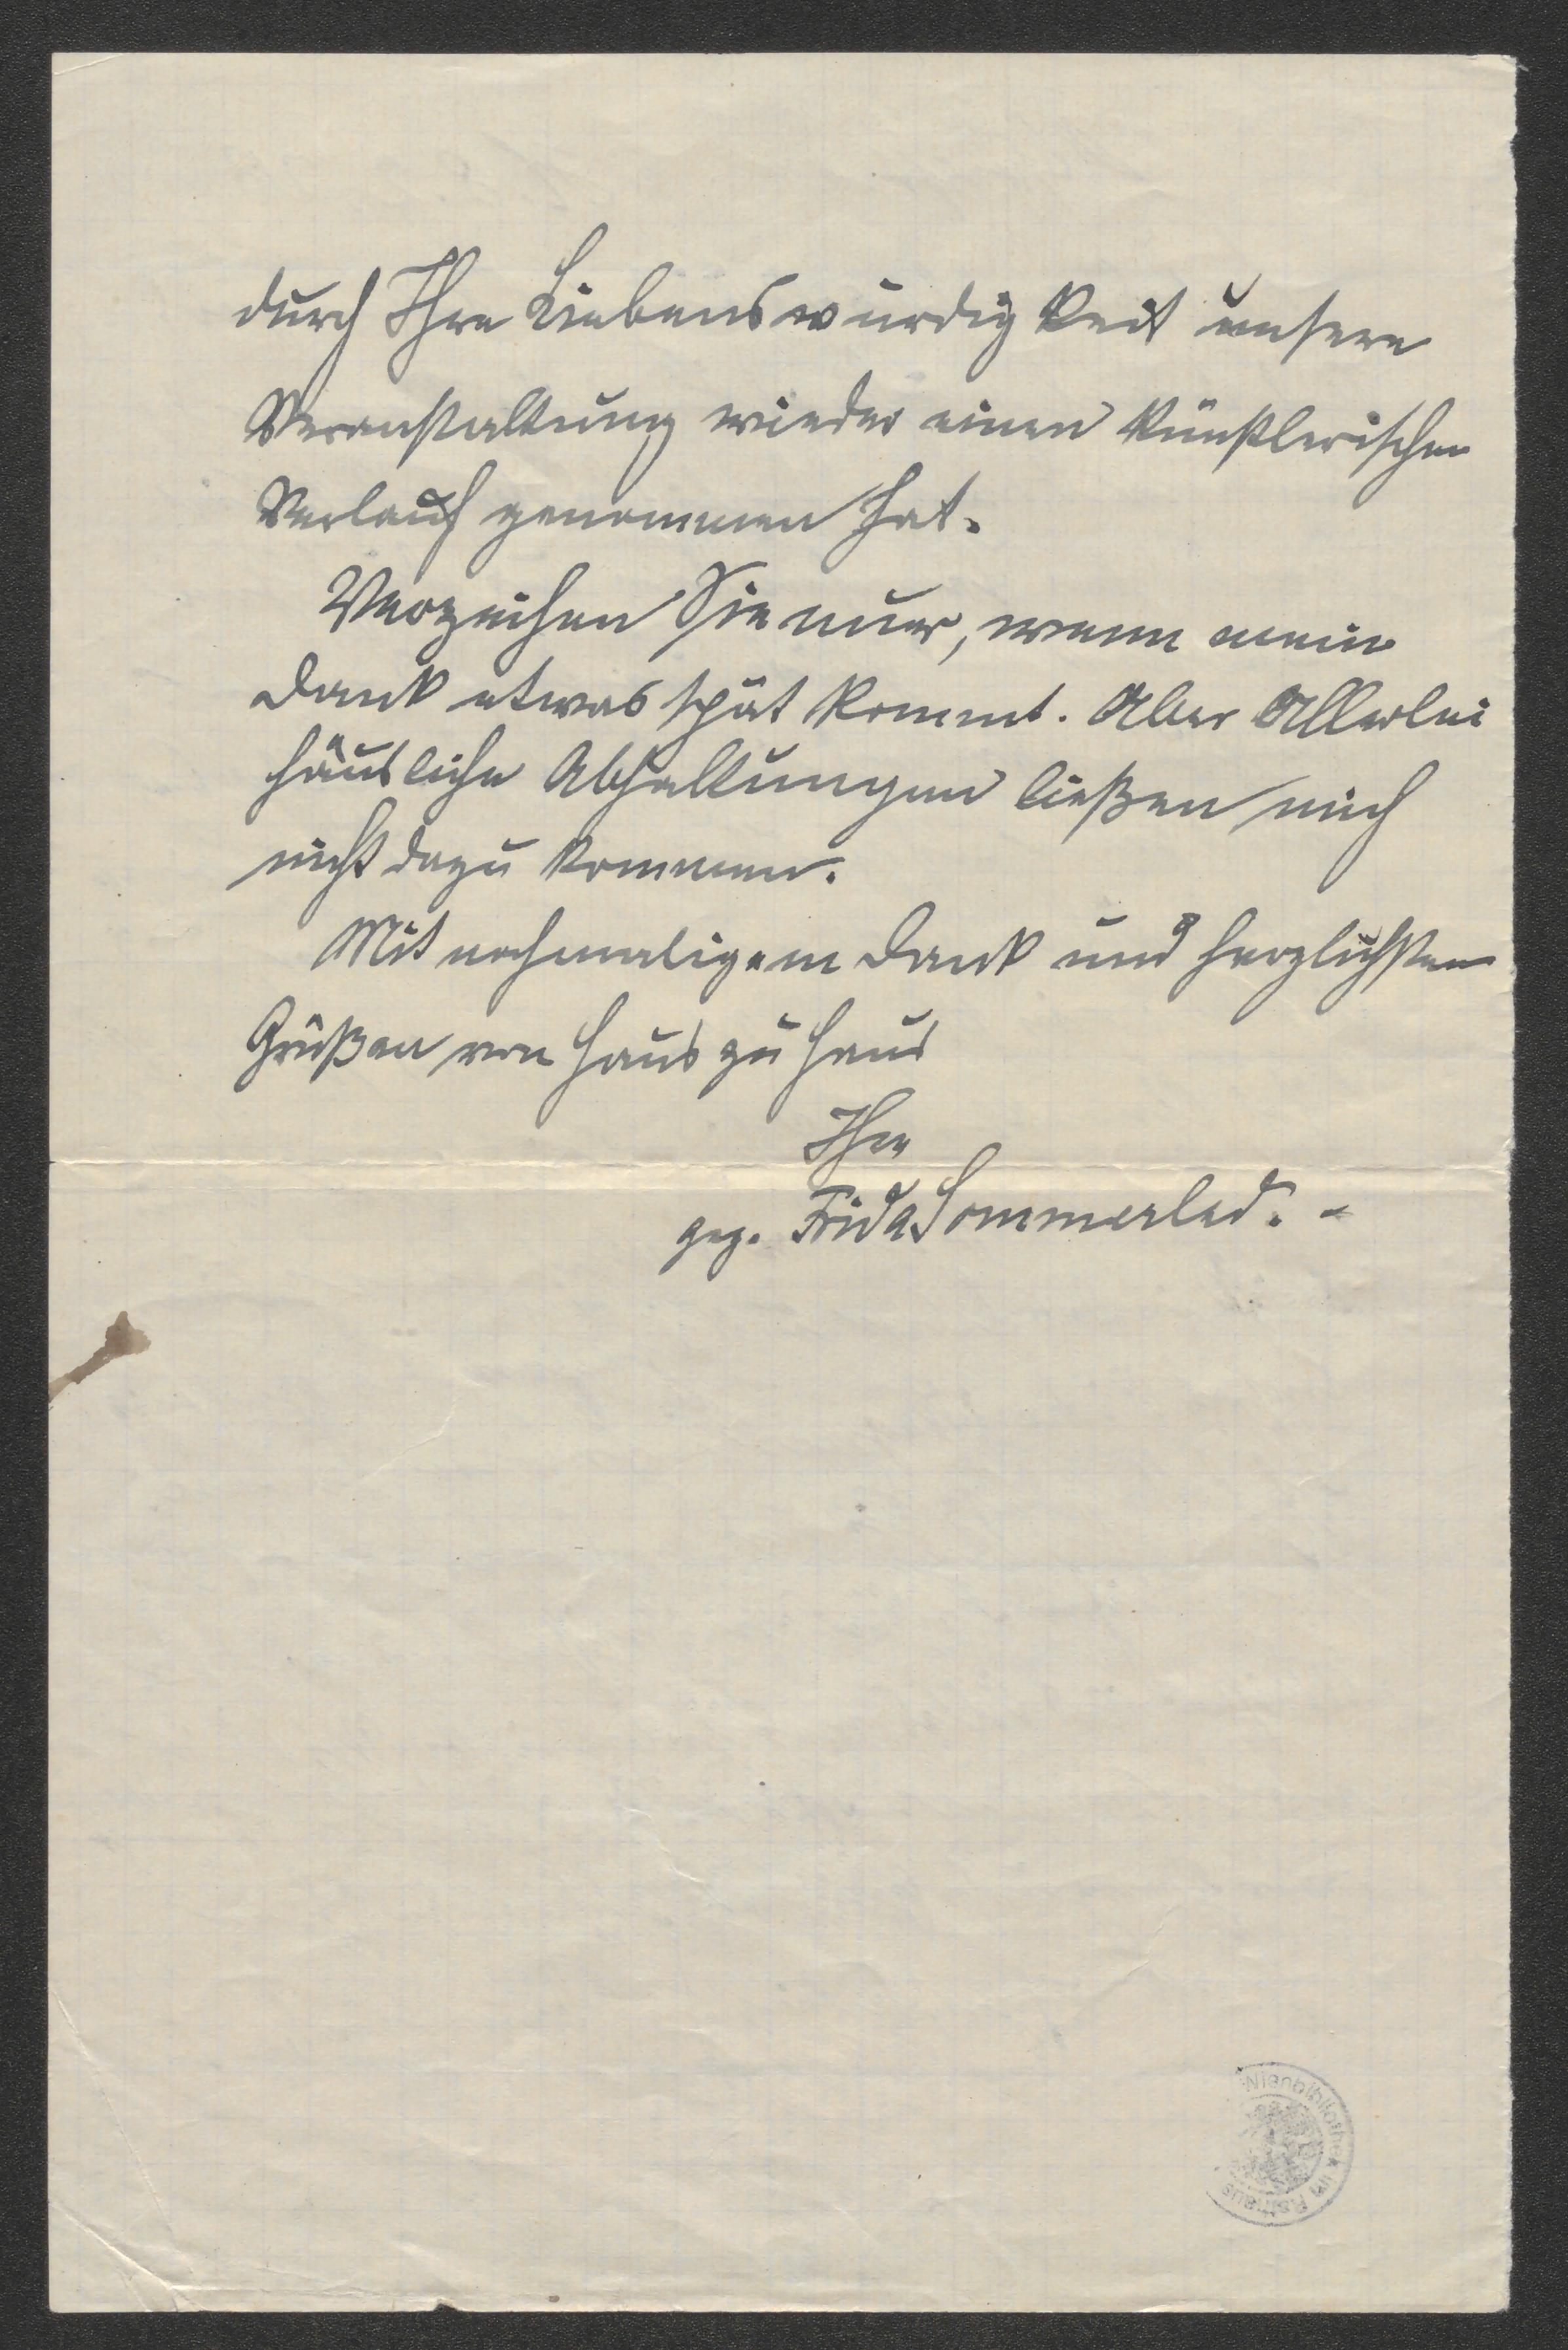 durch Ihre Liebenswürdigkeit unsere
Veranstaltung wieder einen künstlerischen
Verlauf genommen hat.
Verzeihen Sie nur, wenn mein
Dank etwas spät kommt. Aber Allerlei
häusliche Abhaltungen ließen mich
nicht dazu kommen.
Mit nochmaligem Dank und herzlichsten
Grüßen von Haus zu Haus
Ihre
gez. Frida Sommerlad. -
Wienbibliothek im Rathaus